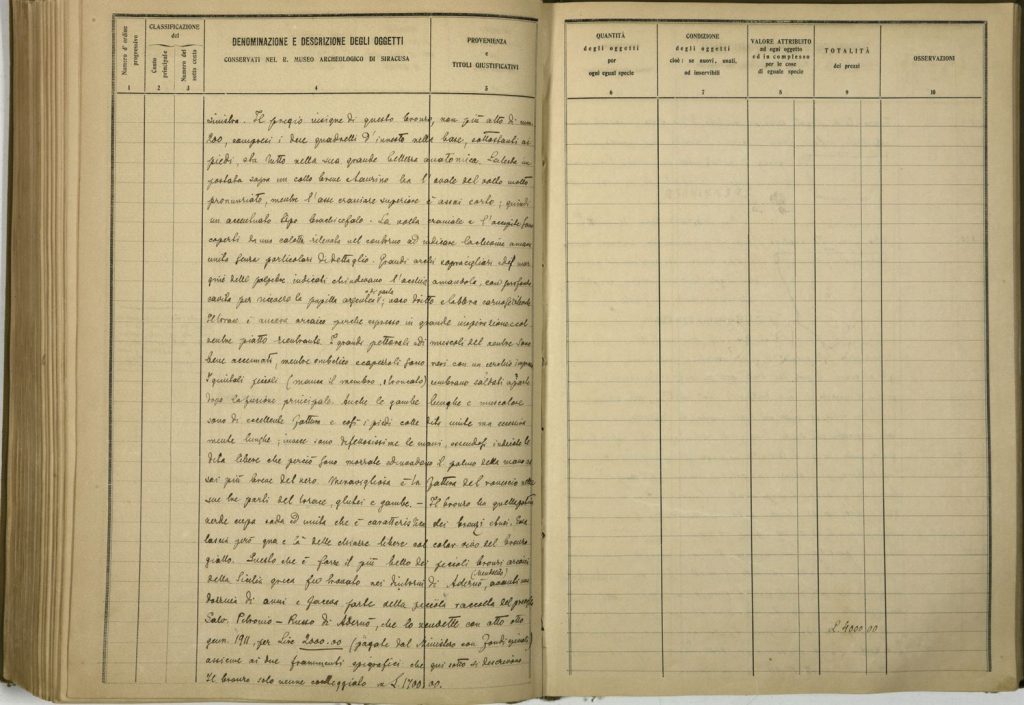 Numero d'ordine progressivo
CLASSIFICAZIONE del
Conto principale
Numero del sotto conto
DENOMINAZIONE E DESCRIZIONE DEGLI OGGETTI
CONSERVATI NEL R. MUSEO ARCHEOLOGICO DI SIRACUSA
PROVENIENZA
e
TITOLI GIUSTIFICATIVI
1 2 3 4 5
sinistra. Il pregio insigne di questo bronzo, non più alto di mm.
200, compresi i due quadrelli d'innesto nella base, sottostanti ai
piedi sta tutto nella sua grande bellezza anatomica. La testa im
postata sopra un collo breve taurino ha l'ovale del volto molto
pronunciato, mentre l'asse craniare superiore è assai corto; quindi
un accentuato tipo brachicefalo. La volta craniale e l'occipite sono
coperti da una calotta rilevata nel contorno ad indicare la chioma
unita senza particolari di dettaglio. Grandi archi sopracigliari e del mar
gine delle palpebre indicati chiudevano l'occhio amandola, con profonda
cavità per ricevere la pupilla argentea o di pasta; naso dritto e labbra carnose
Il torace è ancora arcaico perchè espresso in grande inspirazione col
ventre piatto rientrante. I grandi pettorali ed i muscoli del ventre sono
bene accennati, mentre ombelico e capezzoli sono resi con un cerchio impresso
I genitali piccoli (manca il membro, stroncato) sembrano saldati a parte
dopo la fusione principale. Anche le gambe lunghe e muscolose
sono di eccellente fattura e così i piedi colle dita unite ma
mente lunghe; invece sono difettosissime le mani, essendosi indicate le
dita libere che perciò sono mozzate ed il palmo della mano as
sai più breve del vero. Meravigliosa è la fattura del rovescio nelle
sue tre parti del torace, glutei e gambe. — Il bronzo ha quella patina
verde cupa soda ed unita che è caratteristica dei bronzi Etnei. Essa
lascia però qua e là delle chiazze libere col color vivo del bronzo
giallo. Questo che è forse il più bello dei piccoli bronzi arcaici
della Sicilia greca fu trovato nei dintorni di Adernò (Mendolito), avanti una
dozzina di anni e faceva parte della piccola raccolta del prof.
Salv. Petronio-Russo di Adernò, che lo vendette con atto otto
genn. 1911, per Lire 2000.00 (pagate dal Ministero con fondi speciali)
assieme ai due frammenti epigrafici che qui sotto si descrivono
Il bronzo solo venne conteggiato a £. 1700.00.
QUANTITÀ
degli oggetti
per
ogni egual specie
CONDIZIONE
degli oggetti
cioè: se nuovi, usati,
od inservibili
VALORE ATTRIBUITO
ad ogni oggetto
ed in complesso
per le cose
di eguale specie
TOTALITÀ
dei prezzi
OSSERVAZIONI
6 7 8 9 10
£. 4000,00